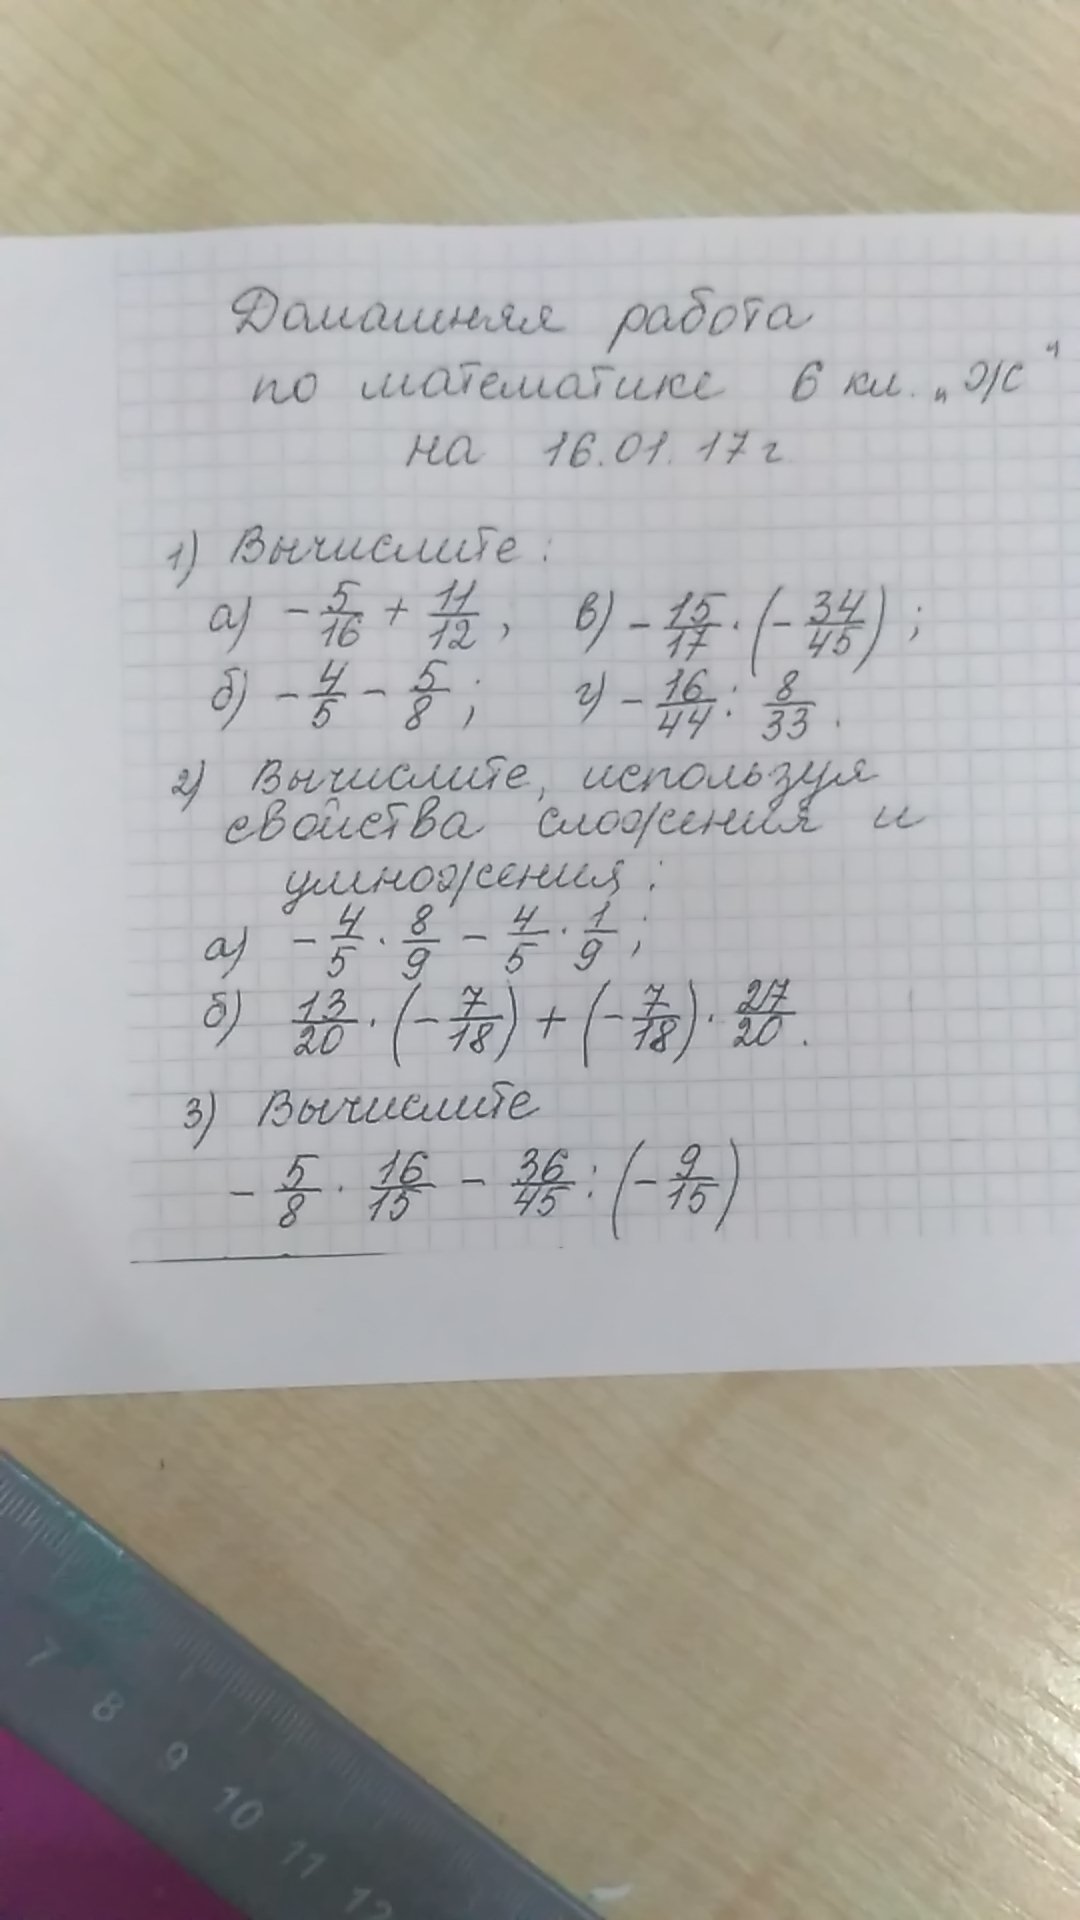 Домашняя работа
по математике 6 кл. „Ж"
на 16.01.17г
1) Вычислите:
а) -5/16 + 11/12, в) -15/17 · (-34/45);
б) -4/5 - 5/8; г) -16/44 : 8/33.
2) Вычислите, используя
свойства сложения и
умножения:
а) -4/5 · 8/9 - 4/5 · 1/9;
б) 13/20 · (-7/18) + (-7/18) · 27/20.
3) Вычислите
-5/8 · 16/15 - 36/45 : (-9/15)
7
8
9
10
11
12